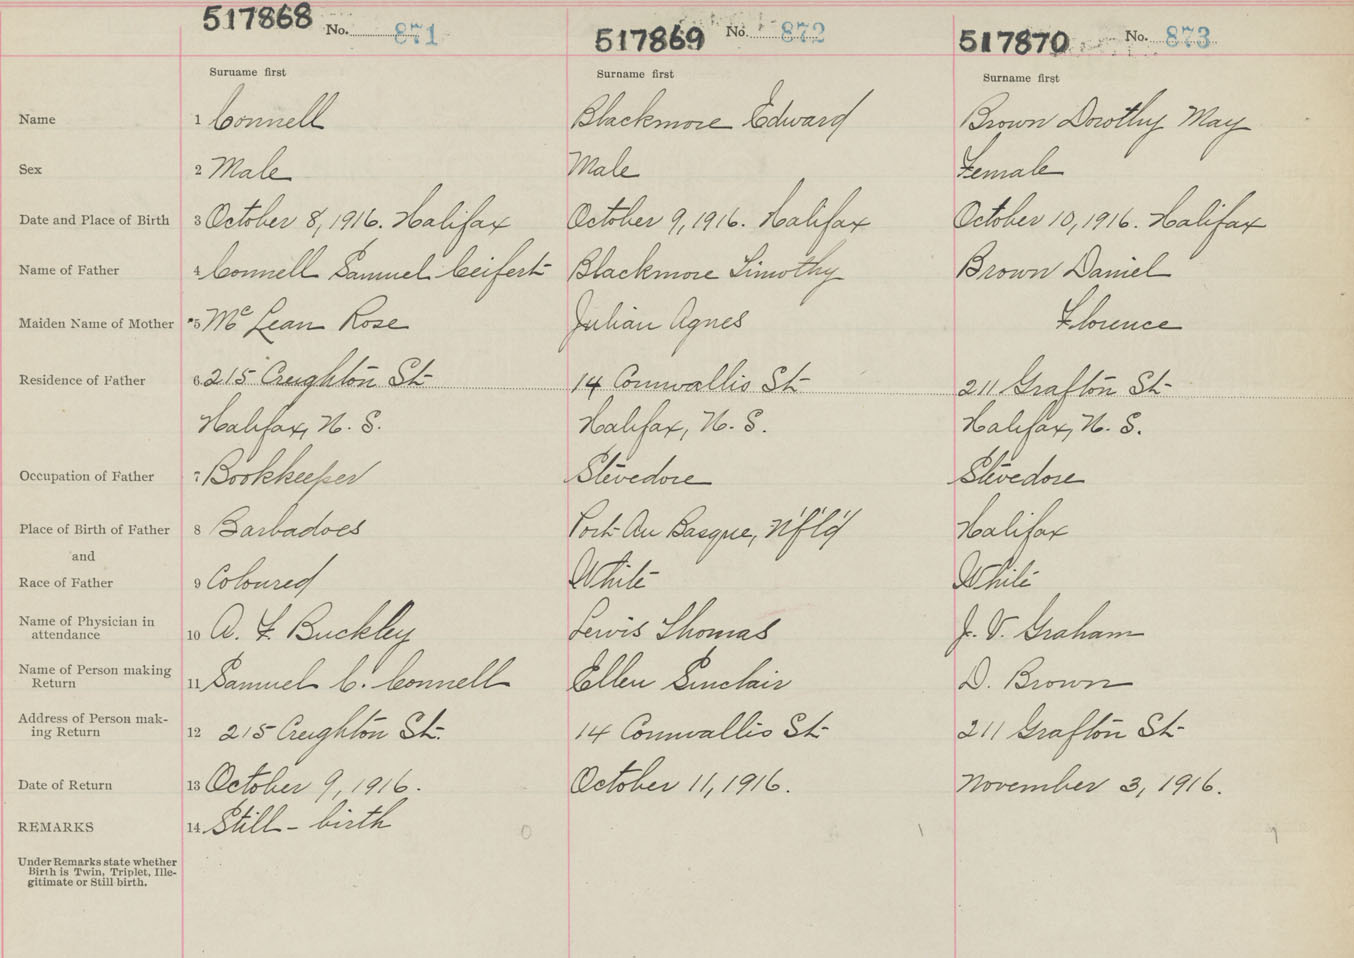 517868 No. 871 517869 No. 872 517870 No. 873
Surname first Surname first Surname first
Name 1 Connell Blackmore Edward Brown Dorothy May
Sex 2 Male Male Female
Date and Place of Birth 3 October 8, 1916. Halifax October 9, 1916. Halifax October 10, 1916. Halifax
Name of Father 4 Connell Samuel Ceifert Blackmore Timothy Brown Daniel
Maiden Name of Mother 5 Mc Lean Rose Julian Agnes Florence
Residence of Father 6 215 Creighton St 14 Cornwallis St 211 Grafton St
Halifax, N. S. Halifax, N. S. Halifax, N. S.
Occupation of Father 7 Bookkeeper Stevedore Stevedore
Place of Birth of Father 8 Barbadoes Port Au Basque, N'f'l'd Halifax
and
Race of Father 9 Coloured White White
Name of Physician in
attendance 10 A. F. Buckley Lewis Thomas J. V. Graham
Name of Person making
Return 11 Samuel C. Connell Ellen Sinclair D. Brown
Address of Person mak-
ing Return 12 215 Creighton St. 14 Cornwallis St 211 Grafton St
Date of Return 13 October 9, 1916. October 11, 1916. November 3, 1916.
REMARKS 14 Still-birth 0 1 1
Under Remarks state whether
Birth is Twin, Triplet, Ille-
gitimate or Still birth.